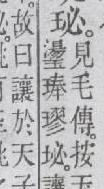 珌。
見毛傳。按
璗琫璆珌。
故曰讓於天子